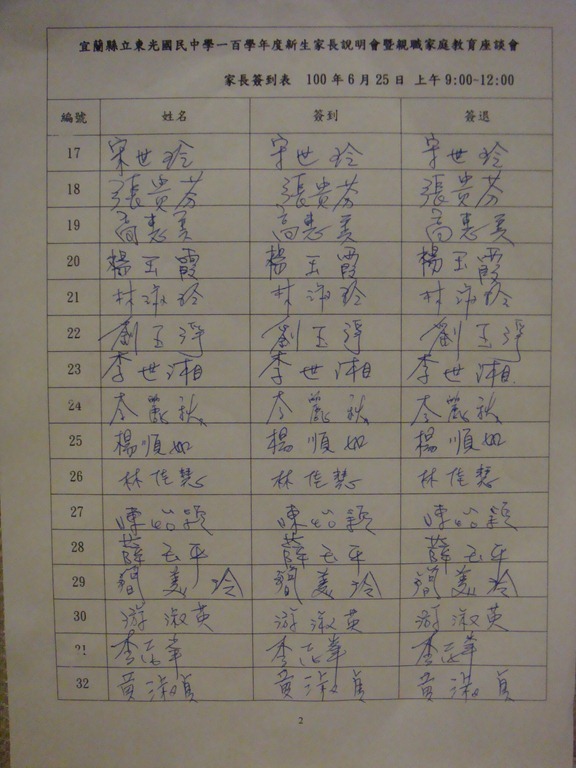 宜蘭縣立東光國民中學一百學年度新生家長說明會暨親職家庭教育座談會
家長簽到表 100 年 6 月 25 日 上午 9:00~12:00
編號 姓名 簽到 簽退
17 宋世玲 宋世玲 宋世玲
18 張貴芬 張貴芬 張貴芬
19 高惠美 高惠美 高惠美
20 楊玉霞 楊玉霞 楊玉霞
21 林淑玲 林淑玲 林淑玲
22 劉玉 劉玉 劉玉
23 李世湘 李世湘 李世湘
24 李麗秋 李麗秋 李麗秋
25 楊順如 楊順如 楊順如
26 林佳慧 林佳慧 林佳慧
27 陳 穎 陳 穎 陳 穎
28 薛玉平 薛玉平 薛玉平
29 簡美玲 簡美玲 簡美玲
30 游淑英 游淑英 游淑英
31 李志華 李志華 李志華
32 黃淑貞 黃淑貞 黃淑貞
2